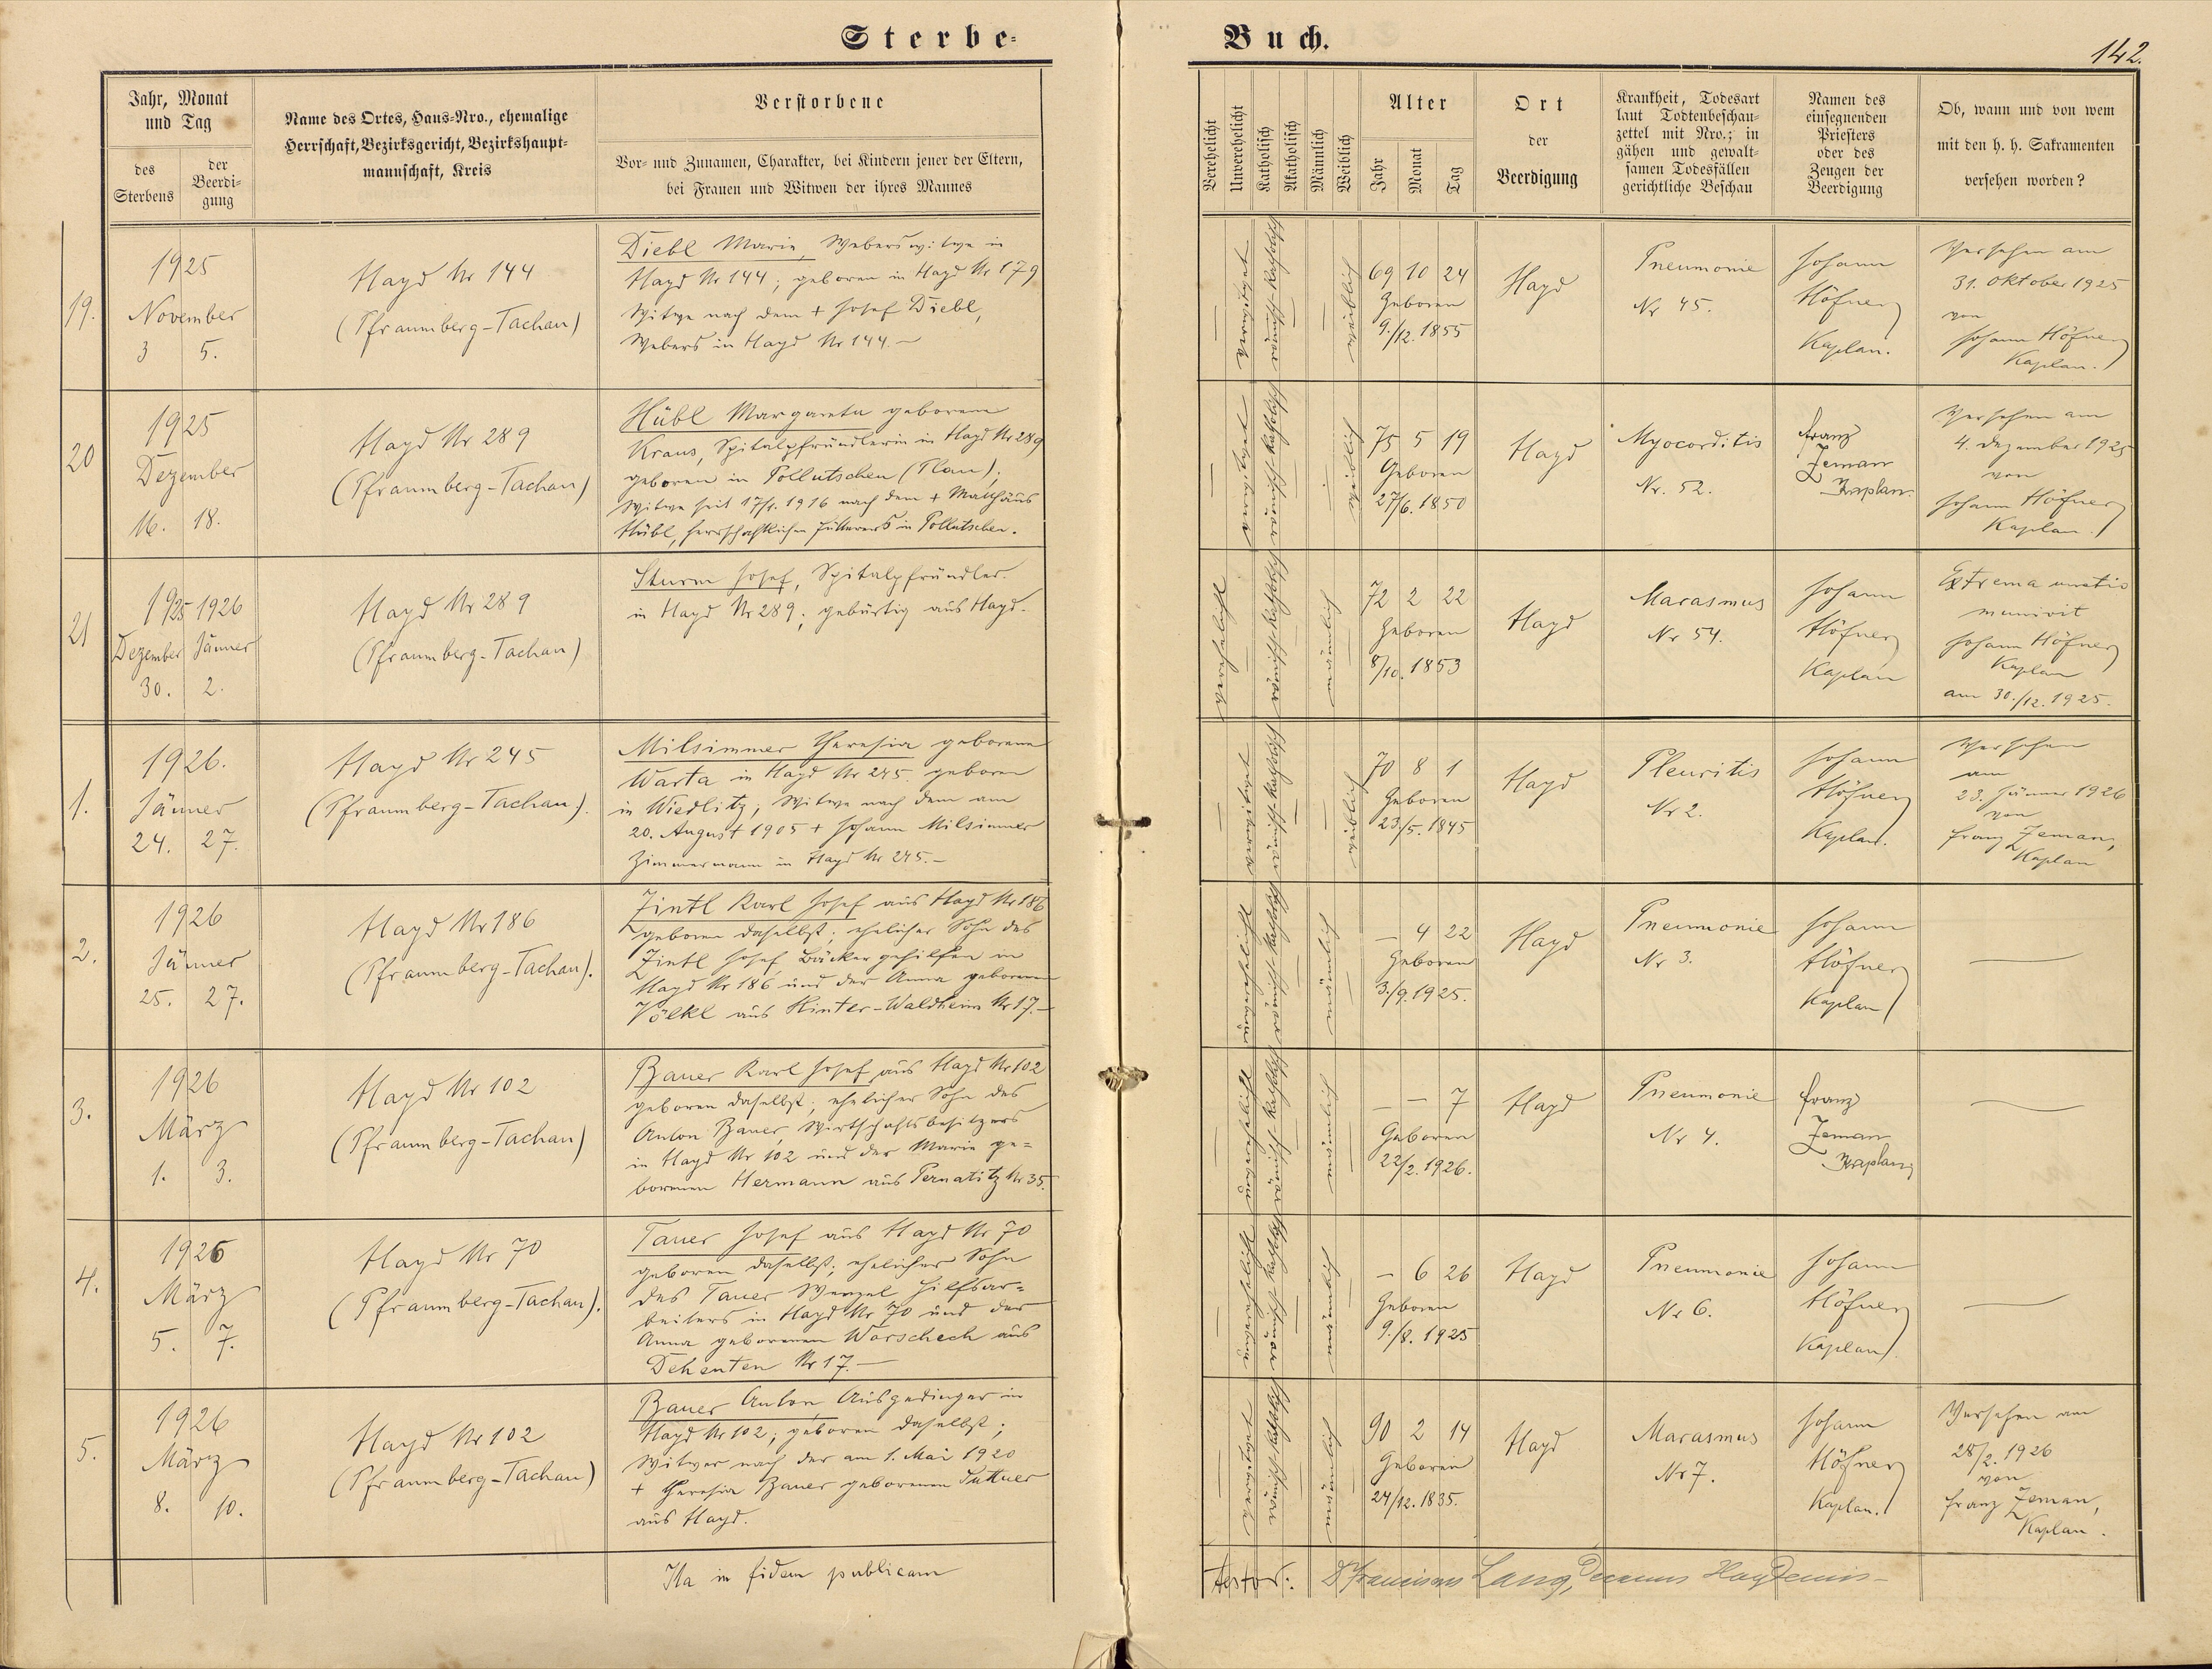 Sterbe-
Buch.
142.
Jahr, Monat
und Tag
des
Sterbens
der
Beerdi-
gung
Name des Ortes, Haus-Nro., ehemalige
Herrschaft, Bezirksgericht, Bezirkshaupt-
mannschaft, Kreis
Verstorbene
Vor- und Zunamen, Charakter, bei Kindern jener der Eltern,
bei Frauen und Witwen der ihres Mannes
Verehelicht
Unverehelicht
Katholisch
Akatholisch
Männlich
Weiblich
Alter
Jahr
Monat
Tag
Ort
der
Beerdigung
Krankheit, Todesart
laut Todtenbeschau-
zettel mit Nro.; in
gähen und gewalt-
samen Todesfällen
gerichtliche Beschau
Namen des
einsegnenden
Priesters
oder des
Zeugen der
Beerdigung
Ob, wann und von wem
mit den h. h. Sakramenten
versehen worden?
19.
1925
November
3 5.
Hayd Nr 144
(Pfraumberg-Tachau)
Diebl Marie, Weberswitwe in
Hayd Nr 144; geboren in Hayd Nr 179
Witwe nach dem + Josef Diebl,
Webers in Hayd Nr 144.-
verwitwet
römisch-katholisch
weiblich
69 10 24
Geboren
9./12. 1855
Hayd
Pneumonie
Nr 45.
Johann
Höfner
Kaplan.
Versehen am
31. Oktober 1925
von
Johann Höfner
Kaplan.
20
1925
Dezember
16. 18.
Hayd Nr 289
(Pfraumberg-Tachau)
Hübl Margareta geborene
Kraus, Spitalpfründlerin in Hayd Nr 289
geboren in Pollutschen (Plan);
Witwe seit 17/1. 1916 nach dem + Matthäus
Hübl, herrschaftlichen Futterers in Pollutschen.
verwitwet
römisch-katholisch
weiblich
75 5 19
Geboren
27/6. 1850
Hayd
Myocorditis
Nr. 52.
Franz
Zeman
Kaplan.
Versehen am
4. Dezember 1925
von
Johann Höfner
Kaplan.
21
1925 1926
Dezember Jänner
30. 2.
Hayd Nr 289
(Pfraumberg-Tachau)
Sturm Josef, Spitalpfründler
in Hayd Nr 289; gebürtig aus Hayd.
verehelicht
römisch-katholisch
männlich
72 2 22
Geboren
8/10. 1853
Hayd
Marasmus
Nr 54.
Johann
Höfner
Kaplan
Extrema unctio
munivit
Johann Höfner
Kaplan
am 30./12. 1925.
1.
1926.
Jänner
24. 27.
Hayd Nr 245
(Pfraumberg-Tachau).
Milsimmer Theresia geborene
Warta in Hayd Nr 245. geboren
in Wiedlitz; Witwe nach dem am
20. August 1905 + Johann Milsimmer
Zimmermann in Hayd Nr 245.-
verwitwet
römisch-katholisch
weiblich
70 8 1
Geboren
23/5. 1845
Hayd
Pleuritis
Nr 2.
Johann
Höfner
Kaplan.
Versehen
am
23. Jänner 1926
von
Franz Zeman,
Kaplan
2.
1926
Jänner
25. 27.
Hayd Nr 186
(Pfraumberg-Tachau).
Zintl Karl Josef aus Hayd Nr 186
geboren daselbst; ehelicher Sohn des
Zintl Josef Bäckergehilfen in
Hayd Nr 186 und der Anna geborenen
Völkl aus Hinter-Waldheim Nr 17.-
unverehelicht
römisch-katholisch
männlich
- 4 22
Geboren
3./9. 1925.
Hayd
Pneumonie
Nr 3.
Johann
Höfner
Kaplan
3.
1926
März
1. 3.
Hayd Nr 102
(Pfraumberg-Tachau)
Bauer Karl Josef aus Hayd Nr 102
geboren daselbst; ehelicher Sohn des
Anton Bauer, Wirtschaftsbesitzers
in Hayd Nr 102 und der Marie ge-
borenen Hermann aus Pernatitz Nr 35.
unverehelicht
römisch-katholisch
männlich
- - 7
Geboren
22/2. 1926.
Hayd
Pneumonie
Nr 4.
Franz
Zeman
Kaplan
4.
1926
März
5. 7.
Hayd Nr 70
(Pfraumberg-Tachau).
Tauer Josef aus Hayd Nr 70
geboren daselbst; ehelicher Sohn
des Tauer Wenzel Hilfsar-
beiters in Hayd Nr 70 und der
Anna geborenen Worschech aus
Dehenten Nr 17.-
unverehelicht
römisch-katholisch
männlich
- 6 26
Geboren
9./8. 1925
Hayd
Pneumonie
Nr 6.
Johann
Höfner
Kaplan
5.
1926
März
8. 10.
Hayd Nr 102
(Pfraumberg-Tachau)
Bauer Anton, Ausgedinger in
Hayd Nr 102; geboren daselbst;
Witwer nach der am 1. Mai 1920
+ Theresia Bauer geborenen Suttner
aus Hayd.
verwitwet
römisch-katholisch
männlich
90 2 14
Geboren
24/12. 1835.
Hayd
Marasmus
Nr 7.
Johann
Höfner
Kaplan.
Versehen am
28/2. 1926
von
Franz Zeman,
Kaplan.
Ita in fidem publicam
testor: Franciscus Lang, Decanus Haydensis